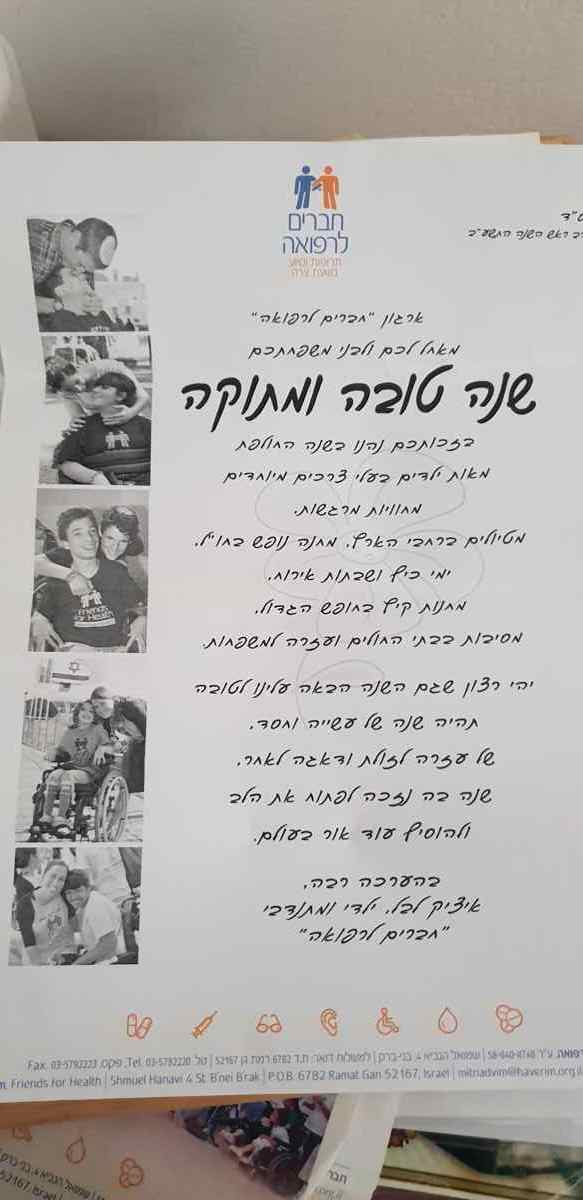 חברים
לרפואה
תרופות וסיוע
בשעת צרה
ס"ד
רב ראש השנה התשע"ב
ארגון "חברים לרפואה"
מאחל לכם ולבני משפחתכם
שנה טובה ומתוקה
בזכותכם נהנו בשנה החולפת
מאות ילדים בעלי צרכים מיוחדים
מחוויות מרגשות.
מטיולים ברחבי הארץ, מחנה נופש בחו"ל,
ימי כיף ושבתות אירוח,
מחנות קיץ בחופש הגדול,
מסיבות בבתי החולים ועזרה למשפחות.
יהי רצון שגם השנה הבאה עלינו לטובה
תהיה שנה של עשייה וחסד,
של עזרה לזולת ודאגה לאחר,
שנה בה נזכה לפתוח את הלב
ולהוסיף עוד אור בעולם.
בהערכה רבה,
איציק לבל, ילדי ומתנדבי
"חברים לרפואה"
Friends
for Health
רפואה, ע"ר 58-040-0748 | שמואל הנביא 4, בני-ברק | למשלוח דואר: ת.ד 6782 רמת גן 52167 | טל. Tel. 03-5792220, פקס. Fax. 03-5792223
m. Friends For Health | Shmuel Hanavi 4 St. B'nei B'rak | P.O.B. 6782 Ramat Gan 52167, Israel | mitnadvim@haverim.org.il
52167, Israel
חבר